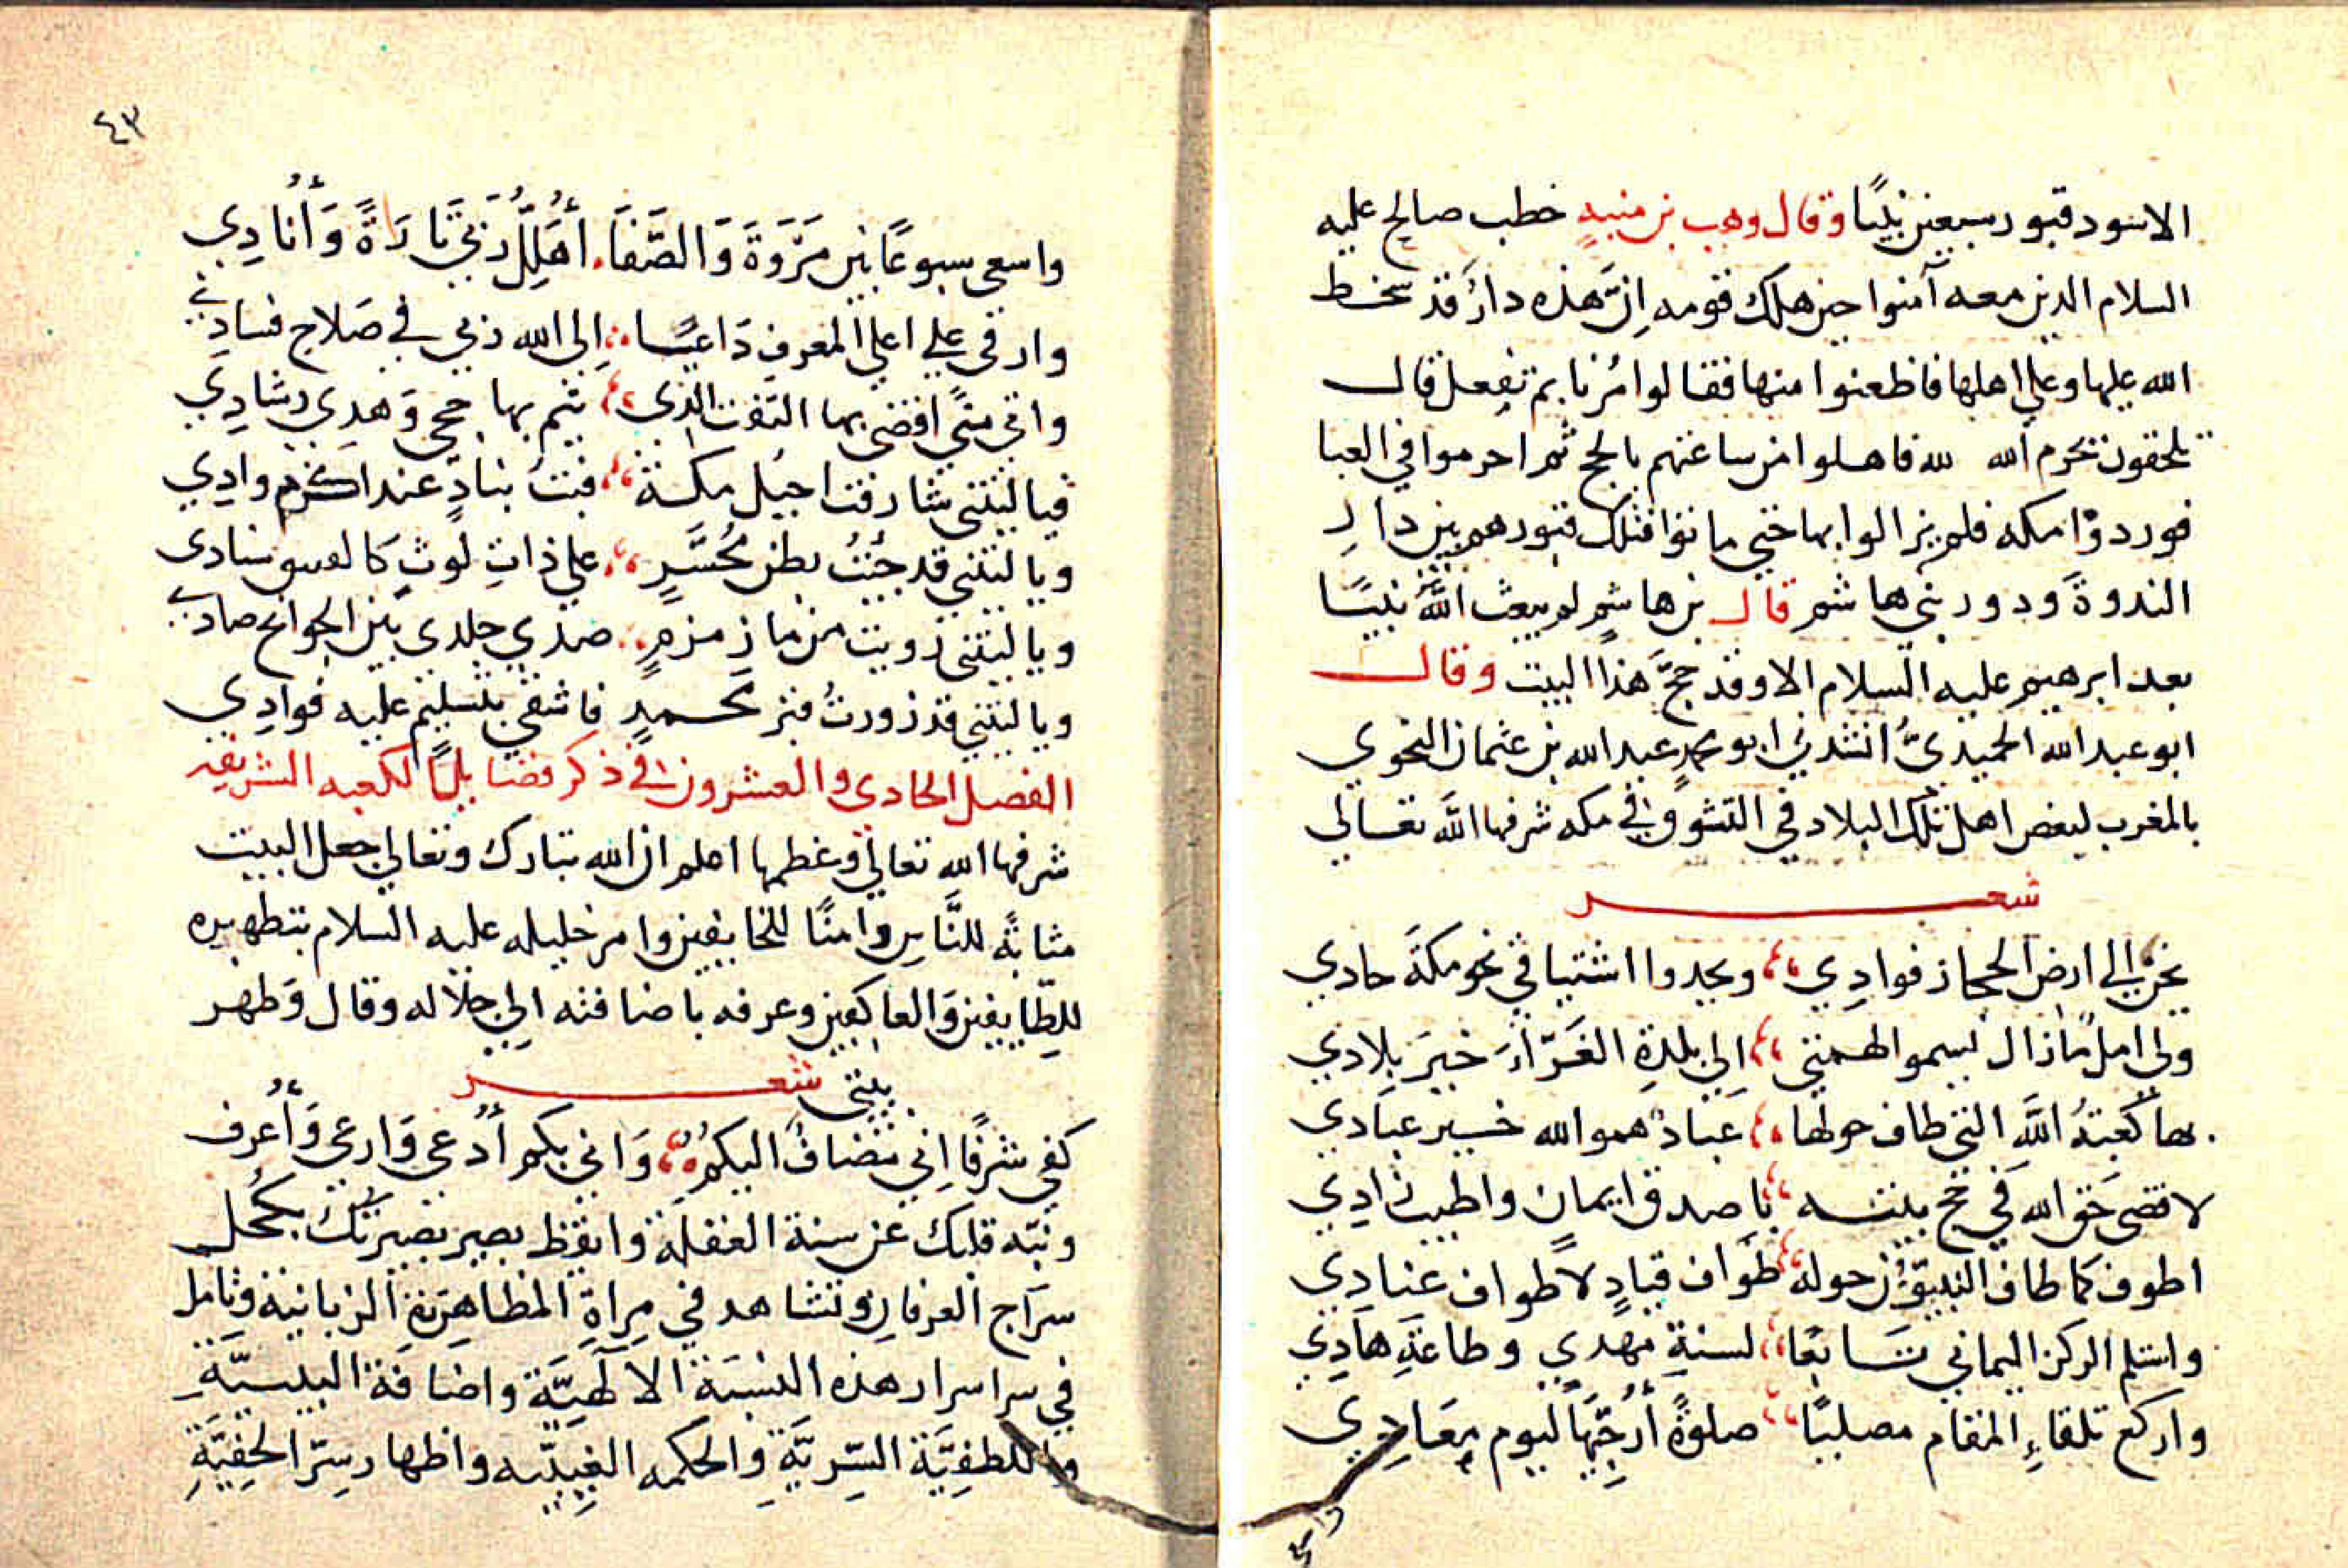 الاسود قبور سبعين نبيًا وقال وهب بن منبهٍ خطب صالح عليه
السلام الذين معه آمنوا حين هلك قومه اِنَّ هذه دارٌ قد سخط
الله عليها وعلى اهلها فاظعنوا منها فقالوا مُرنا بم نفعل قال
تلحقون بحرم الله لله فاهلوا من ساعتهم بالحج ثم احرموا في العبا
فوردوْا مكه فلم يزالوا بها حتى ماتوا فتلك قبورهم بين دارِ
الندوة ودور بني هاشم قال بن هاشمٍ لم يبعث اللهُ نبيًا
بعد ابرهيم عليه السلام الا وقد حجَّ هذا البيت وقال
ابو عبد الله الحميديُّ انشدني ابو محمدٍ عبد الله بن عثمان النحوي
بالمغرب لبعض اهل تلك البلاد في التشوق في مكه شرفها اللهُ تعالى
شعر
يحن الى ارض الحجاز فوادِي ويحدوا اشتياقي نحو مكةَ حادي
ولى املٌ مازال يسموا لهمتي اِلى بلدةِ الغَرّاءَ خيرَ بِلادي
بها كعبتهُ اللهَ التى طاف حولها عبادٌ همو الله خير عبَادي
لاقضى حَق الله في حج بيته باصدق ايمانٍ واطيب زادِي
اطوف كما طاف النبيوُّن حوله طَواف قيادٍ لا طواف عنادِي
واستلم الركن اليماني متَابعًا لسنةِ مهدي وطاعَةِ هَادِي
واركع تلقاءِ المقام مصليًا صلوةً أرجّيهَا ليوم مِعَادِي
واسعى
٤٣
واسعى سبوعًا بين مَرَوَةَ وَالصَّفَا أُهَلِّلُ رَبّى تَارَةً وَأُنادِي
وارقى على اعلى المعرفِ دَاعيًا اِلى الله ربي في صَلاح فسادي
واتى منًى اقضى بها التفث الذي يتم بها حجي وَهدي رشادِي
فيا ليتني شارفت اجبل مكة فبتُ بنادٍ عند اكرم وادِي
ويا ليتني قد جُبْتُ بطن مُحَسَّرٍ على ذاتِ لَوثٍ كالفنيق سنادى
ويا ليتني رويت من ماءِ زمزمٍ صدي جلدى بين الجوانح صادى
ويا ليتني قد زورتُ قبر محمدٍ فاشفى بتسليم عليه فوادِي
الفصل الحادى والعشرون في ذكر فضايل الكعبه الشريفه
شرفها الله تعالى وعظمها اعلم ان الله تبارك وتعالى جعل البيت
مثابةً للنَّاسِ وامنًا للخايفين وامر خليله عليه السلام بتطهيره
للِطّايفين وَالعاكفين وعرفه باضافته الى جلاله وقال وَطهر
بيتى شعر
كفى شرفًا اِني مضافٌ اليكمُ وَانى بكم أُدعى وَارعى وَأُعرف
ونبّه قلبك عن سنة الغفلة وايقظ بصير بصيرتك بكحل
سرَاج العرفان وتشاهد في مِراةِ المظاهرَةِ الربانية وتامل
في سر اسرار هذه النسبَة الالَهيَّة واضافَة البيتيَّةِ
واللطفِيَّة السّريَّةِ والحكمه الغيبيّه واظهار سِرّ الخَفيَّةِ